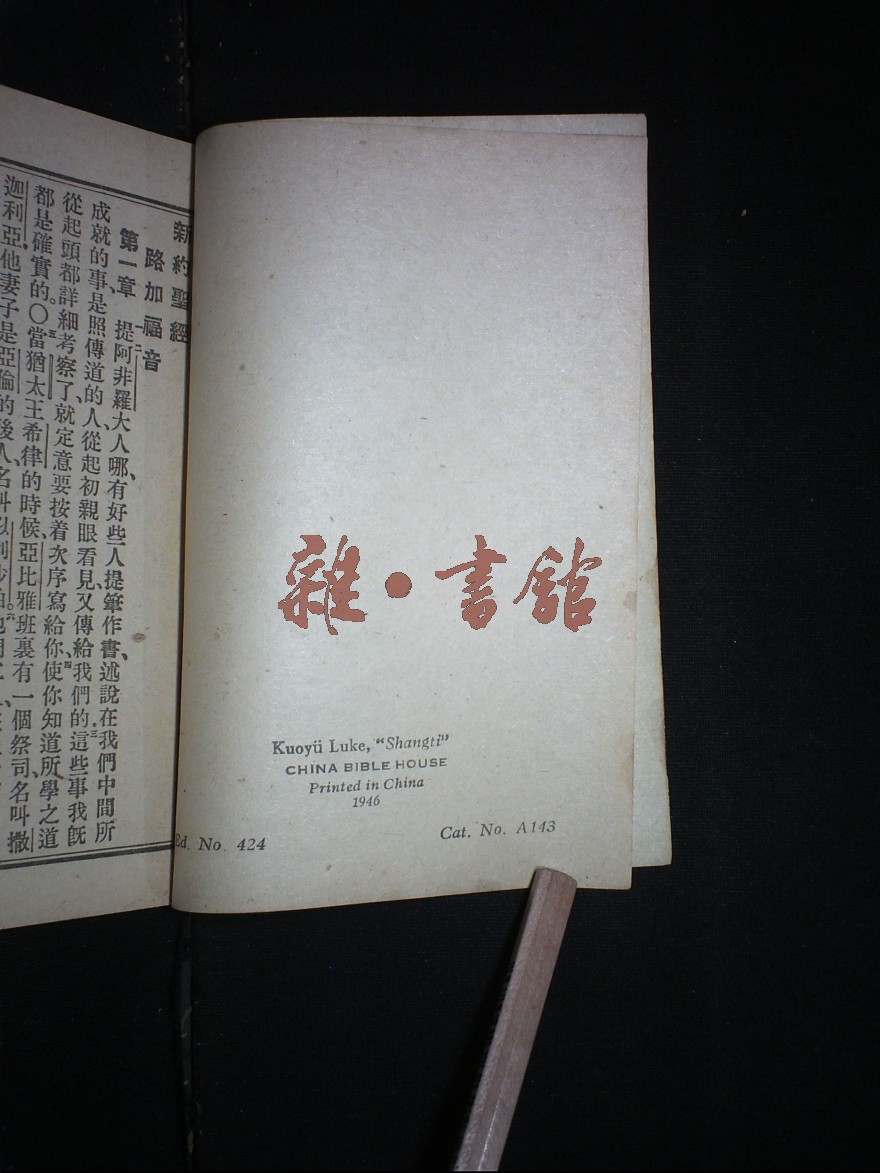 新約聖經
路加福音
第一章 一二提阿非羅大人哪、有好些人提筆作書、述說在我們中間所
成就的事、是照傳道的人、從起初親眼看見又傳給我們的。三這些事我旣
從起頭都詳細考察了、就定意要按着次序寫給你、四使你知道所學之道
都是確實的。○五當猶太王希律的時候、亞比雅班裏有一個祭司、名叫撒
迦利亞、他妻子是亞倫的後人、名叫
雜·書館
Kuoyü Luke, "Shangti"
CHINA BIBLE HOUSE
Printed in China
1946
Ed. No. 424
Cat. No. A143